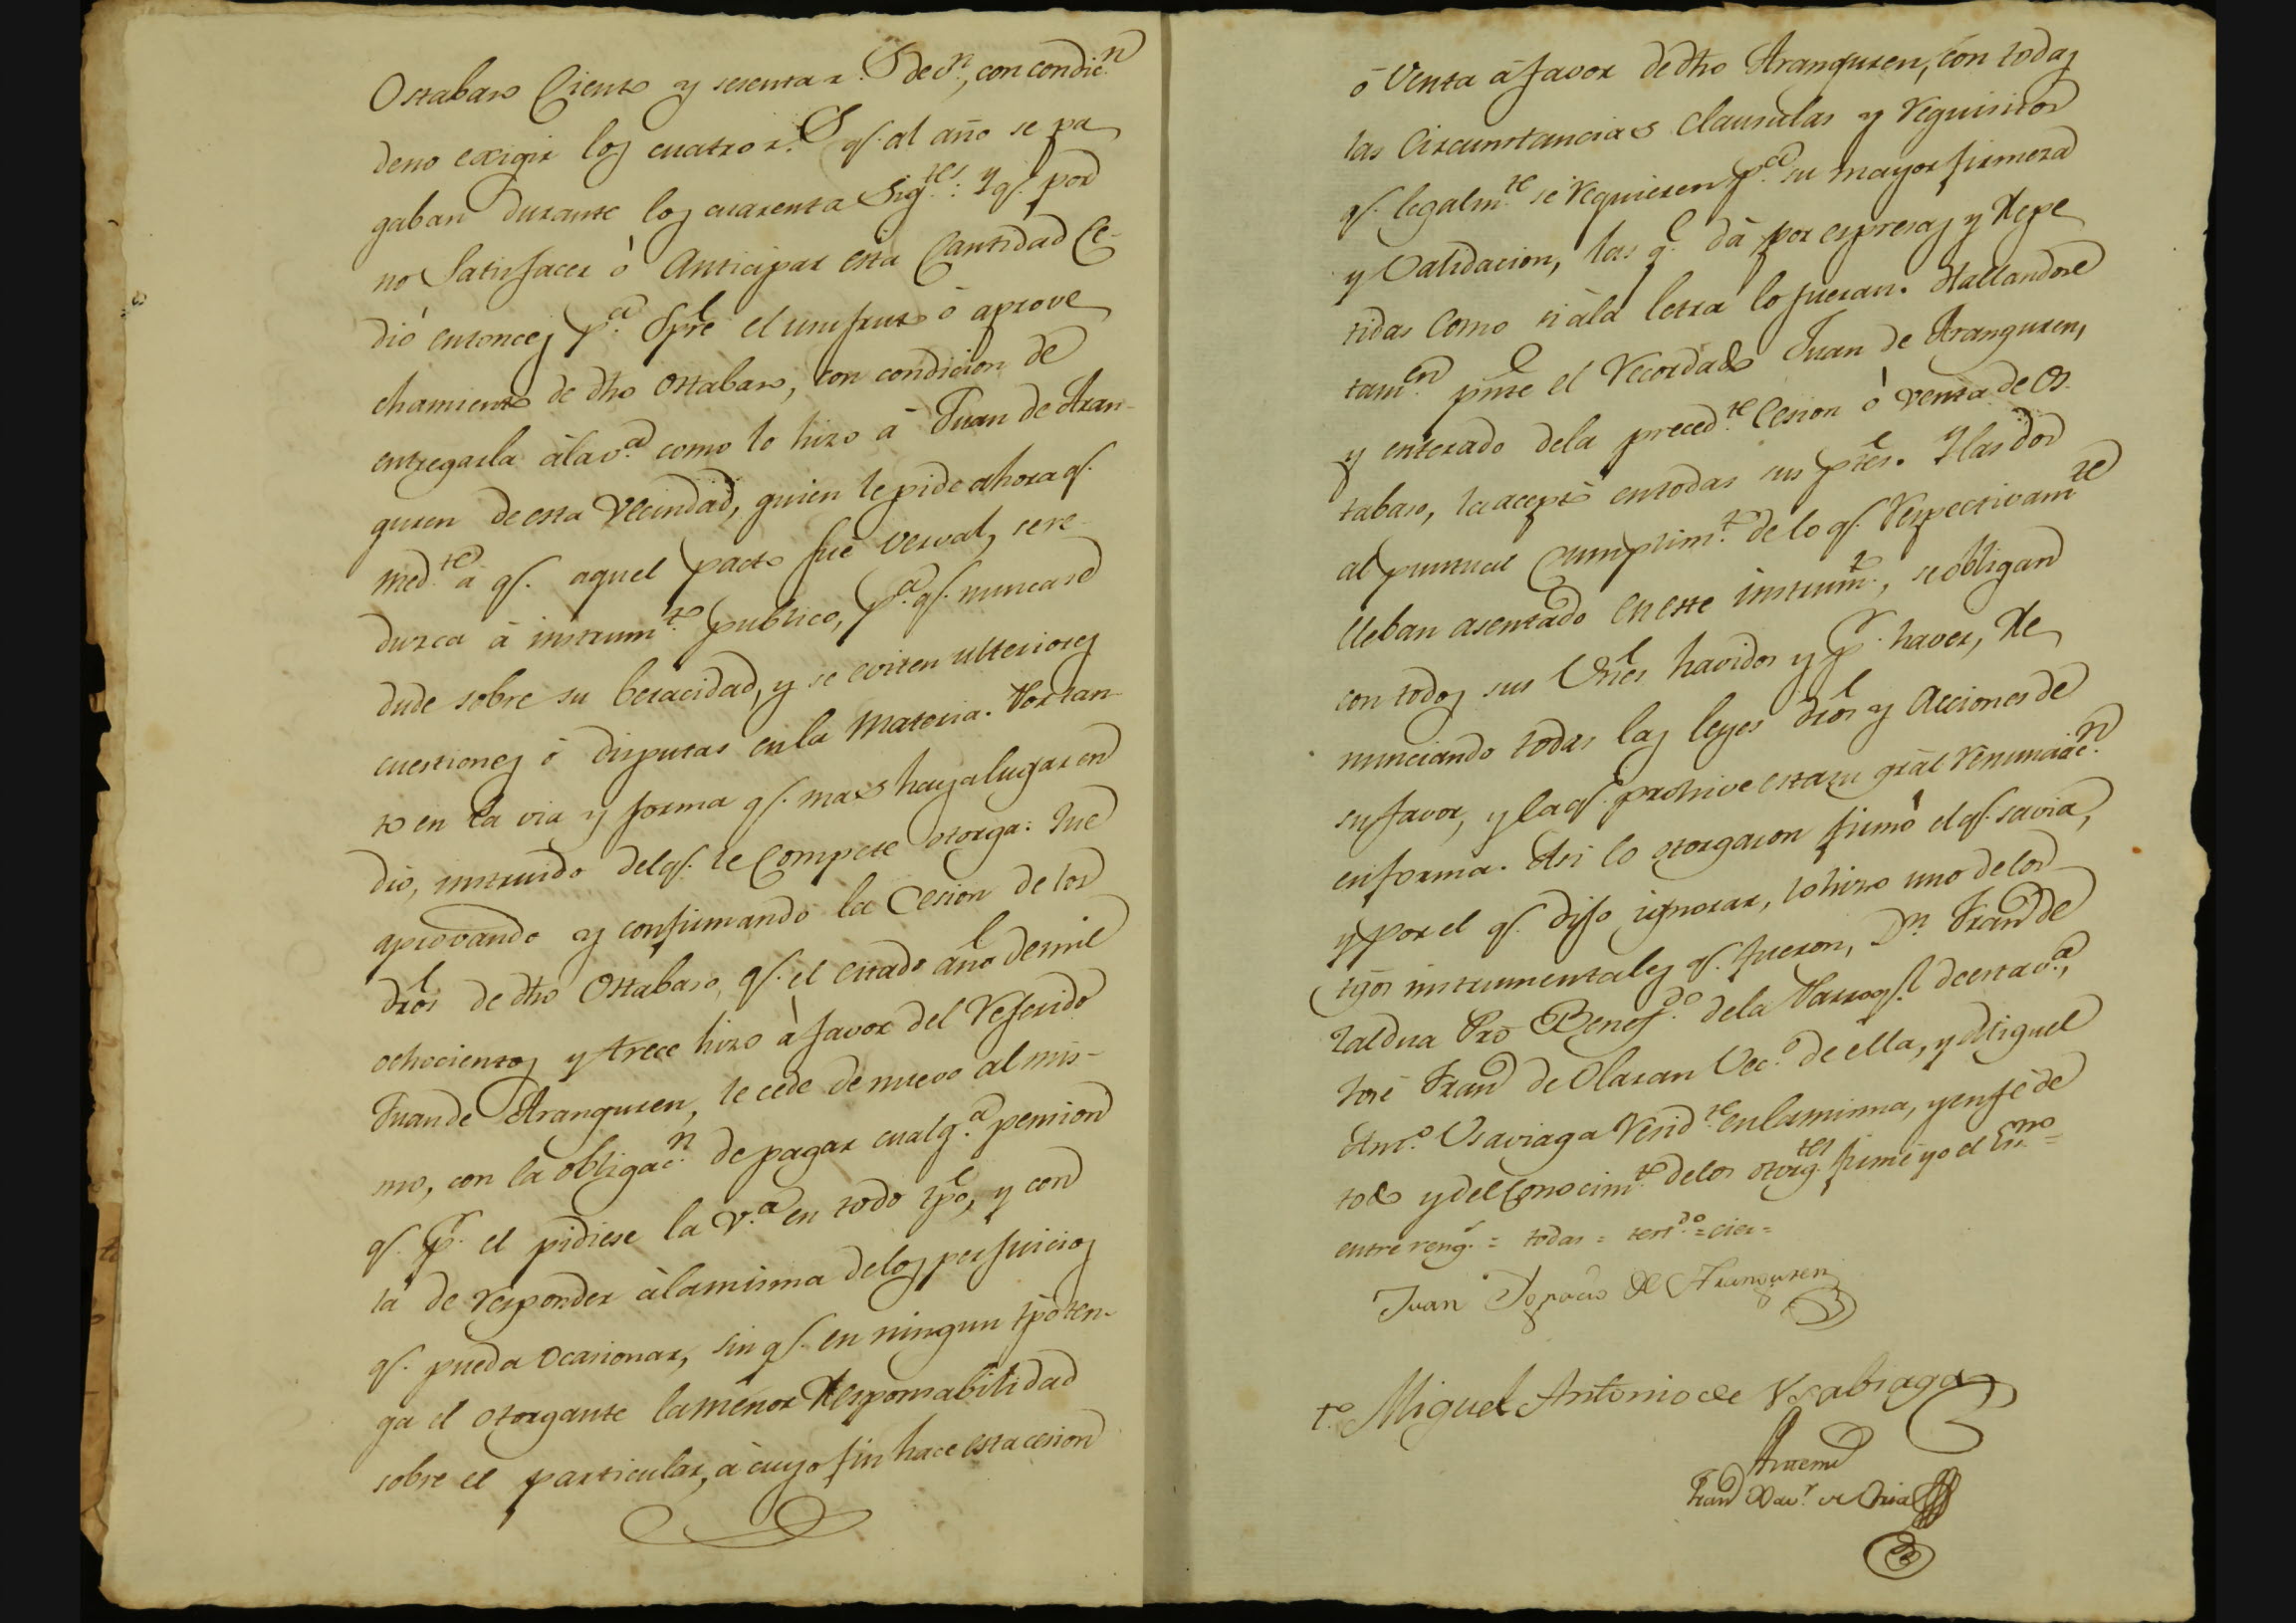 Ostabaro Ciento y sesenta r.s de v.n, con condic.n
de no exigir los cuatro r.s q.e al año se pa
gaban durante los cuarenta Sig.tes: Y q.e por
no Satisfacer ó Anticipar esta Cantidad Ce-
dió entonces p.a Spre el usufruto ó aprove
chamiento de dho Ostabaro, con condicion de
entregarla á la v.a como lo hizo á Juan de Aran-
guren de esta Vecindad, quien le pide ahora q.e
med.te á q.e aquel pacto fué verval, se re
duzca á instrum.to publico, p.a q.e nunca se
dude sobre su beracidad, y se eviten ulteriores
cuestiones ó disputas en la Materia. Por tan-
to en la via y forma q.e mas haya lugar en
dro, instruido del q.e le Compete otorga: Que
aprovando y confirmando la Cesion de los
dros de dho Ostabaro, q.e el citado año de mil
ochocientos y trece hizo á favor del Referido
Juan de Aranguren, le cede de nuevo al mis-
mo, con la obligac.n de pagar cualq.a pension
q.e p.r el pidiese la v.a en todo tpo, y con
la de responder á la misma de los perjuicios
q.e pueda ocasionar, sin q.e en ningun tpo ten-
ga el otorgante la menor Responsabilidad
sobre el particular, á cuyo fin hace esta cesion
ó Venta á favor de dho Aranguren, con todas
las Circunstancias clausulas y requisitos
q.e legalm.te se requieren p.a su mayor firmeza
y Validacion, las q.e dá por espresas y Repe
tidas como si á la letra lo fueran. Hallandose
tam.en pnte el Recordado Juan de Aranguren,
y enterado de la preced.te Cesion ó venta de Os
tabaro, la aceptó en todas sus ptes. Y las dos
al puntual Cumplim.to de lo q.e Respectivam.te
lleban asentado en este instrum.to, se obligan
con todos sus Vnes havidos y p.r haver, Re
nunciando todas las leyes dros y Acciones de
su favor, y la q.e prohive esta su gral renunciac.n
en forma. Asi lo otorgaron firmó el q.e savia,
y por el q.e dijo ignorar, lo hizo uno de los
tgos instrumentales q.e fueron, D.n Fran.co de
Zaldua Pro Benef.do de la Parroq.l de esta v.a,
José Fran.co de Olaran Vec.o de ella, y Miguel
Ant.o Usaviaga resid.te en la misma, y en fé de
todo y del Conocim.to de los otorg.tes firmé yo el Ess.no =
entre reng.s = todas = test.do = cien =
Juan Ygnacio de Aranguren
t.o Miguel Antonio de Usabiaga
Antemi
Fran.co Xav.r de